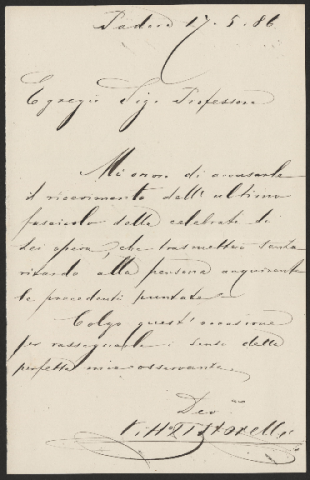 Padova 17. 5. 86
Egregio Sigr. Professore
Mi onoro di accusarle
il ricevimento dell' ultimo
fascicolo della celebrata di
Lei opera, che trasmetterò senza
ritardo alla persona acquirente
le precedenti puntate.
Colgo quest' occasione
per rassegnarle i sensi della
perfetta mia osservanza
Dev.mo